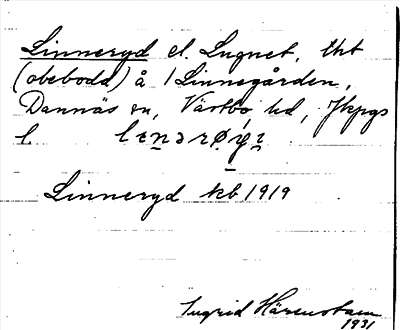 Linneryd el. Lugnet, lht
(obebodd) å 1 Linnegården,
Dannäs sn, Västbo hd, Jkpgs
l.
Linneryd kb. 1919
Ingrid Härenstam
1931